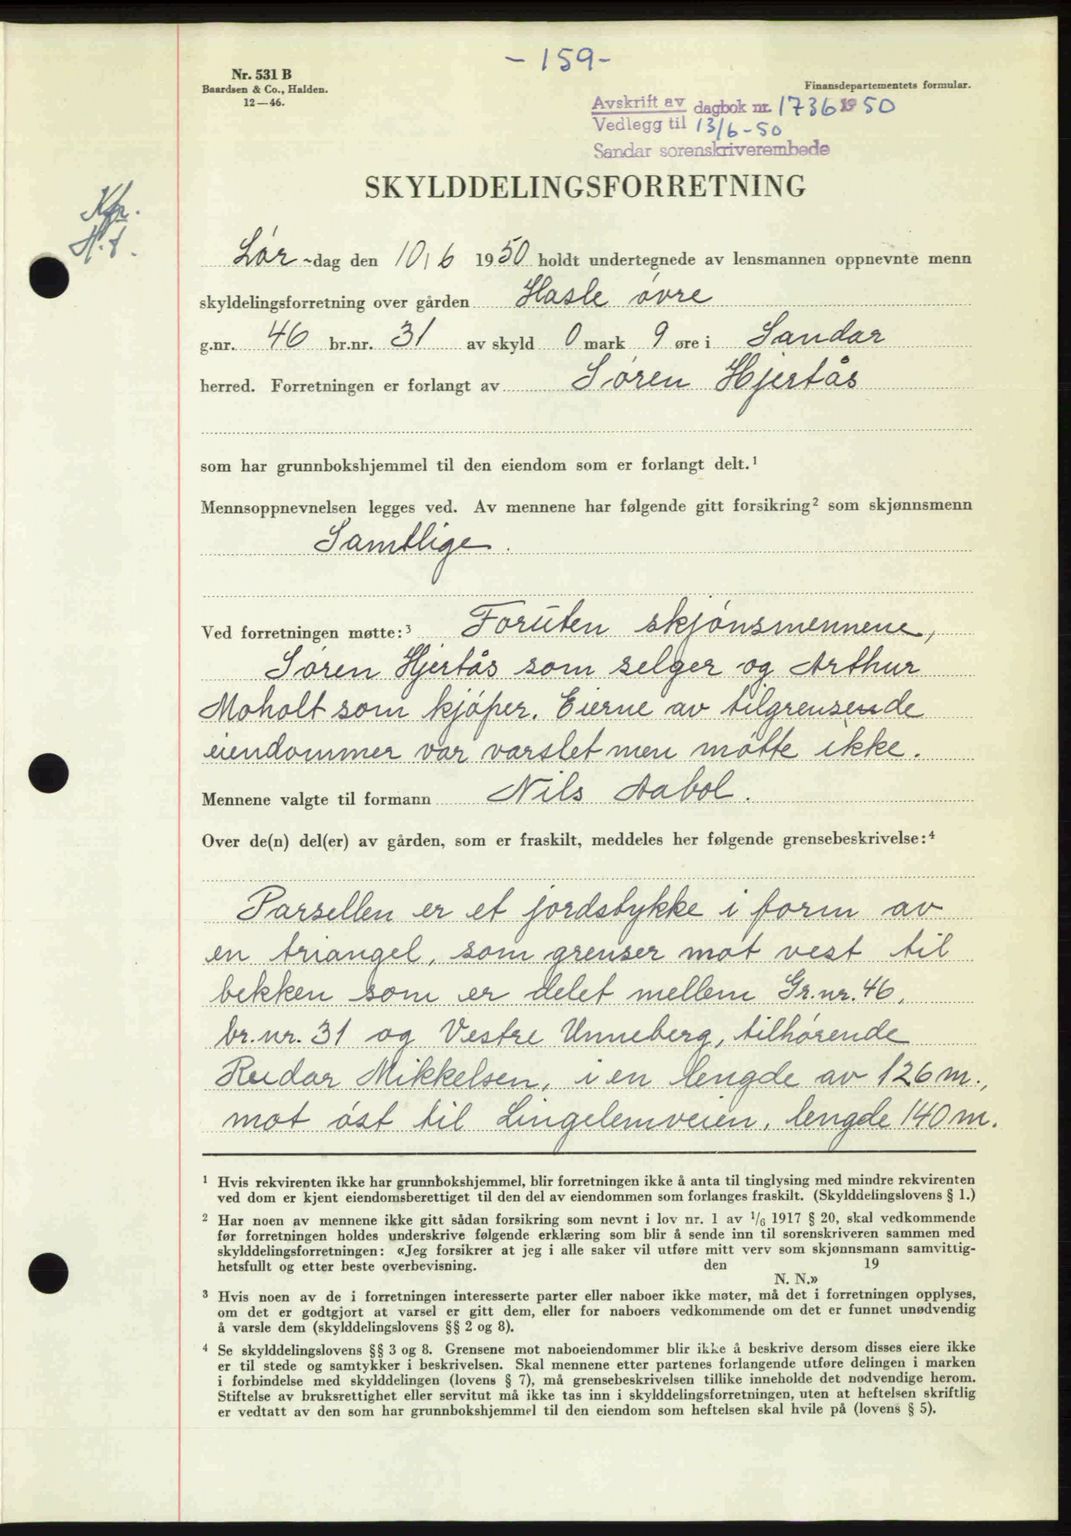 - 159-
Nr. 531 B
Baardsen & Co., Halden.
12-46.
Finansdepartementets formular.
Avskrift av dagbok nr. 1736 1950
Vedlegg til 13/6-50
Sandar sorenskriverembede
Kfr.
H.t.
SKYLDDELINGSFORRETNING
Lør-dag den 10/6 1950 holdt undertegnede av lensmannen oppnevnte menn
skyldelingsforretning over gården Hasle øvre
g.nr. 46 br.nr. 31 av skyld 0 mark 9 øre i Sandar
herred. Forretningen er forlangt av Søren Hjertås
som har grunnbokshjemmel til den eiendom som er forlangt delt.¹
Mennsoppnevnelsen legges ved. Av mennene har følgende gitt forsikring² som skjønnsmenn
Samtlige.
Ved forretningen møtte:³ Foruten skjønsmennene,
Søren Hjertås som selger og Arthur
Moholt som kjøper. Eierne av tilgrensende
eiendommer var varslet men møtte ikke.
Mennene valgte til formann Nils Aabol.
Over de(n) del(er) av gården, som er fraskilt, meddeles her følgende grensebeskrivelse:⁴
Parsellen er et jordstykke i form av
en triangel, som grenser mot vest til
bekken som er delet mellem Gr.nr. 46,
br.nr. 31 og Vestre Unneberg, tilhørende
Reidar Mikkelsen, i en lengde av 126 m.,
mot øst til Lingelemveien, lengde 140 m.
¹ Hvis rekvirenten ikke har grunnbokshjemmel, blir forretningen ikke å anta til tinglysing med mindre rekvirenten
ved dom er kjent eiendomsberettiget til den del av eiendommen som forlanges fraskilt. (Skylddelingslovens § 1.)
² Har noen av mennene ikke gitt sådan forsikring som nevnt i lov nr. 1 av 1/6 1917 § 20, skal vedkommende
før forretningen holdes underskrive følgende erklæring som blir å sende inn til sorenskriveren sammen med
skylddelingsforretningen: «Jeg forsikrer at jeg i alle saker vil utføre mitt verv som skjønnsmann samvittig-
hetsfullt og etter beste overbevisning. den 19
N. N.»
³ Hvis noen av de i forretningen interesserte parter eller naboer ikke møter, må det i forretningen opplyses,
om det er godtgjort at varsel er gitt dem, eller for naboers vedkommende om det er funnet unødvendig
å varsle dem (skylddelingslovens §§ 2 og 8).
⁴ Se skylddelingslovens §§ 3 og 8. Grensene mot naboeiendommer blir ikke å beskrive dersom disses eiere ikke
er til stede og samtykker i beskrivelsen. Skal mennene etter partenes forlangende utføre delingen i marken
i forbindelse med skylddelingen (lovens § 7), må grensebeskrivelsen tillike inneholde det nødvendige herom.
Stiftelse av bruksrettighet eller servitut må ikke tas inn i skylddelingsforretningen, uten at heftelsen skriftlig
er vedtatt av den som har grunnbokshjemmel til den eiendom som heftelsen skal hvile på (lovens § 5).